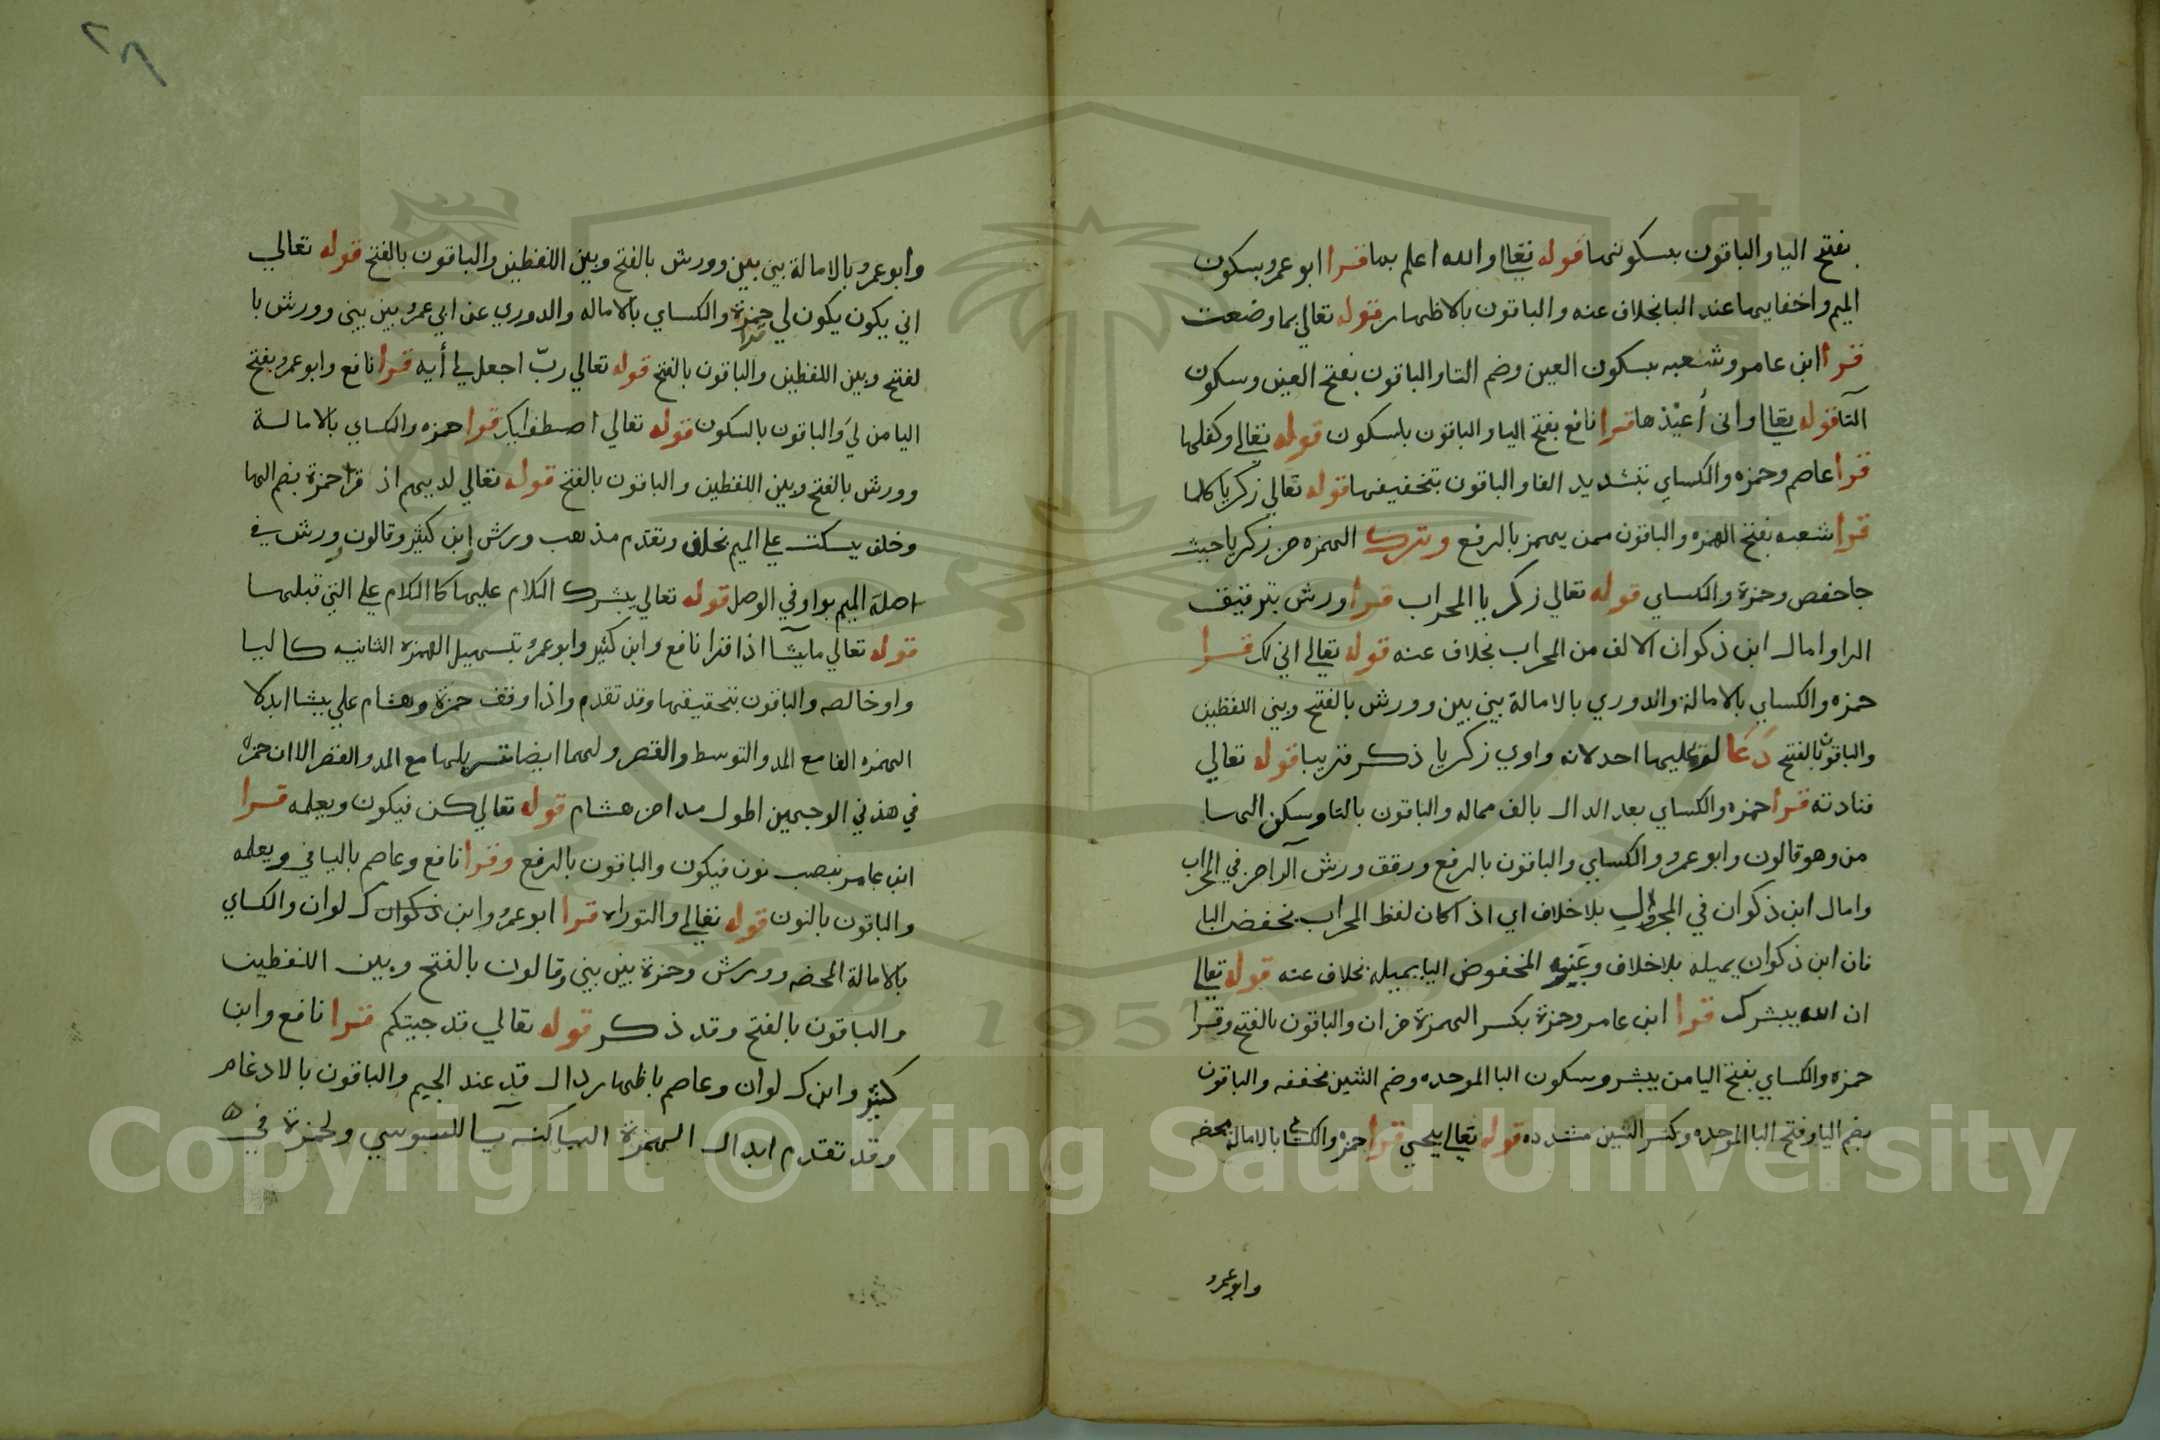 بفتح اليا والباقون بسكونها قوله تعالى والله اعلم بما قرا ابو عمرو بسكون
الميم واخفايها عند البا بخلاف عنه والباقون بالاظهار قوله تعالي بما وضعت
قرا ابن عامر وشعبه بسكون العين وضم التا والباقون بفتح العين وسكون
التا قوله تعالى واني أعيذها قرا نافع بفتح اليا والباقون بلسكون قوله تعالى وكفلها
قرا عاصم وحمزه والكساي بتشديد الفا والباقون بتخفيفها قوله تعالي زكريا كلما
قرا شعبه بفتح الهمزه والباقون ممن يهمز بالرفع وترك الهمزه من زكريا حيث
جا حفص وحمزة والكساي قوله تعالي زكريا المحراب قرا ورش بترقيق
الرا وامال ابن ذكوان الالف من المحراب بخلاف عنه قوله تعالى اني لك قرا
حمزه والكساي بالامالة والدوري بالامالة بين بين وورش بالفتح وبين اللفظين
والباقون بالفتح دَعَا احد لانه واوي زكريا ذكر قريبا قوله تعالي
فنادته قرا حمزه والكساي بعد الدال بالف مماله والباقون بالتا وسكن الهسا
من وهو قالون وابو عمرو والكساي والباقون بالرفع ورقق ورش الرا من في المحراب
وامال ابن ذكوان في المحراب بلا خلاف اي اذا كان لفظ المحراب بخفض البا
فان ابن ذكوان يميله بلا خلاف وغير المخفوض اليا يميله بخلاف عنه قوله تعالى
ان الله يبشرك قرا ابن عامر وحمزة بكسر الهمزة من ان والباقون بالفتح وقرا
حمزه والكساي بفتح اليا من يبشر وسكون البا الموحده وضم الشين مخففه والباقون
بضم اليا وفتح البا الموحده وكسر الشين مشدده قوله تعالى بيحيي قرا حمزه والكساي بالامالة محضه
وابو عمرو
٢٨
وأبو عمرو بالامالة بين بين وورش بالفتح وبين اللفظين والباقون بالفتح قوله تعالي
اني يكون يكون لي قرا حمزة والكساي بالاماله والدوري عن ابي عمرو بين بين وورش با
لفتح وبين اللفظين والباقون بالفتح قوله تعالي ربّ اجعل لي أيه قرا نافع وابو عمرو بفتح
اليا من ليَ والباقون بالسكون قوله تعالي اصطفايك قرا حمزه والكساي بالامالة
وورش بالفتح وبين اللفظين والباقون بالفتح قوله تعالي لديهم اذ قرا حمزة بضم الها
وخلف يسكت علي الميم بخلاف وتقدم مذهب ورش وابن كثير وقالون وورش في
اصلة الميم بواو في الوصل قوله تعالي يبشرك الكلام عليها كا الكلام علي التي قبلها
قوله تعالي ما يشآ اذا قرا نافع وابن كثير وابو عمرو بتسهيل الهمزه الثانيه كاليا
واوخالصه والباقون بتحقيقها وقد تقدم واذا وقف حمزة وهشام علي يشا ابدلا
الهمزه الفا مع المد والتوسط والقصر ولهما ايضا تسهيلها مع المد والقصر الا ان حمزه
في هذين الوجهين اطول مدا من هشام قوله تعالي كن فيكون ويعلمه قرا
ابن عامر بنصب نون فيكون والباقون بالرفع وقرا نافع وعاصم باليا في ويعلمه
والباقون بالنون قوله تعالى والتوراه قرا ابو عمرو وابن ذكوان كـ لوان والكساي
بالامالة المحضه وورش وحمزة بين بين وقالون بالفتح وبين اللفظين
والباقون بالفتح وقد ذكر قوله تعالي قد جيتكم قرا نافع وابن
كثير وابن كـ لوان وعاصم باظهار دال قد عند الجيم والباقون بالادغام
وقد تقدم ابدال الهمزة الساكنه يآ للسوسي ولحمزة في
1957
Copyright © King Saud University